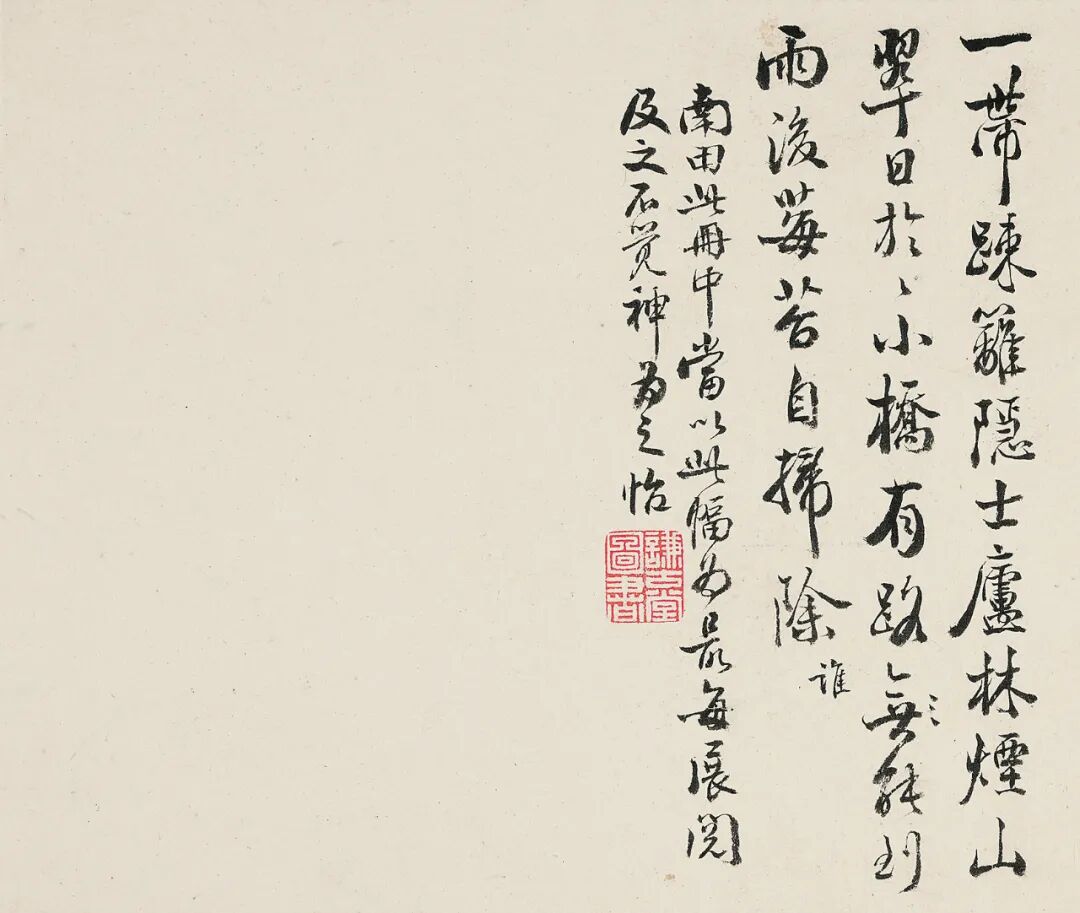 一帶疎籬隱士廬林煙山
翠日於〻小橋有路無能到
雨後莓苔自掃除
誰
南田此冊中當以此幅為最每展閱
及之不覺神為之怡
謙堂
圖書